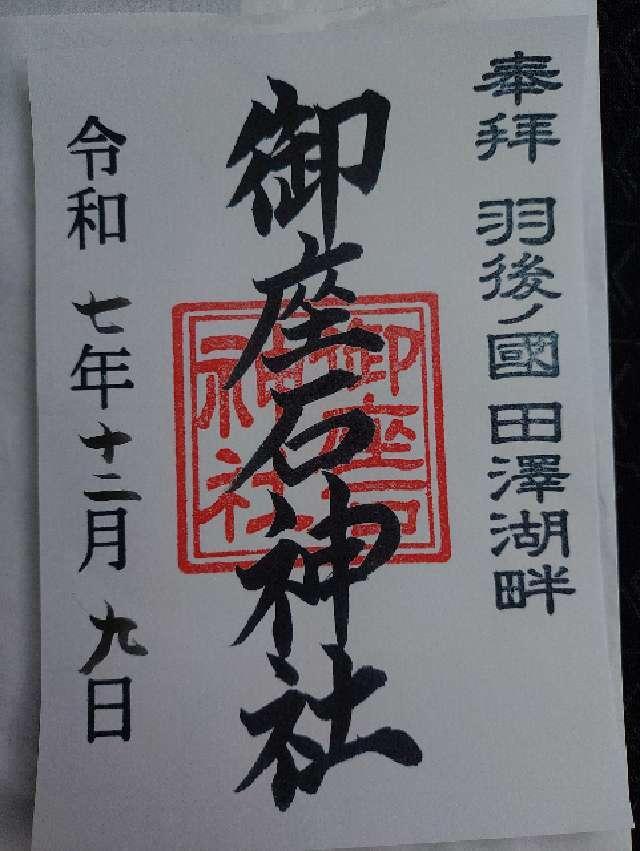 奉拝 羽後ノ國 田澤湖畔
御座石神社
御座石
神社
令和 七年十二月 九日